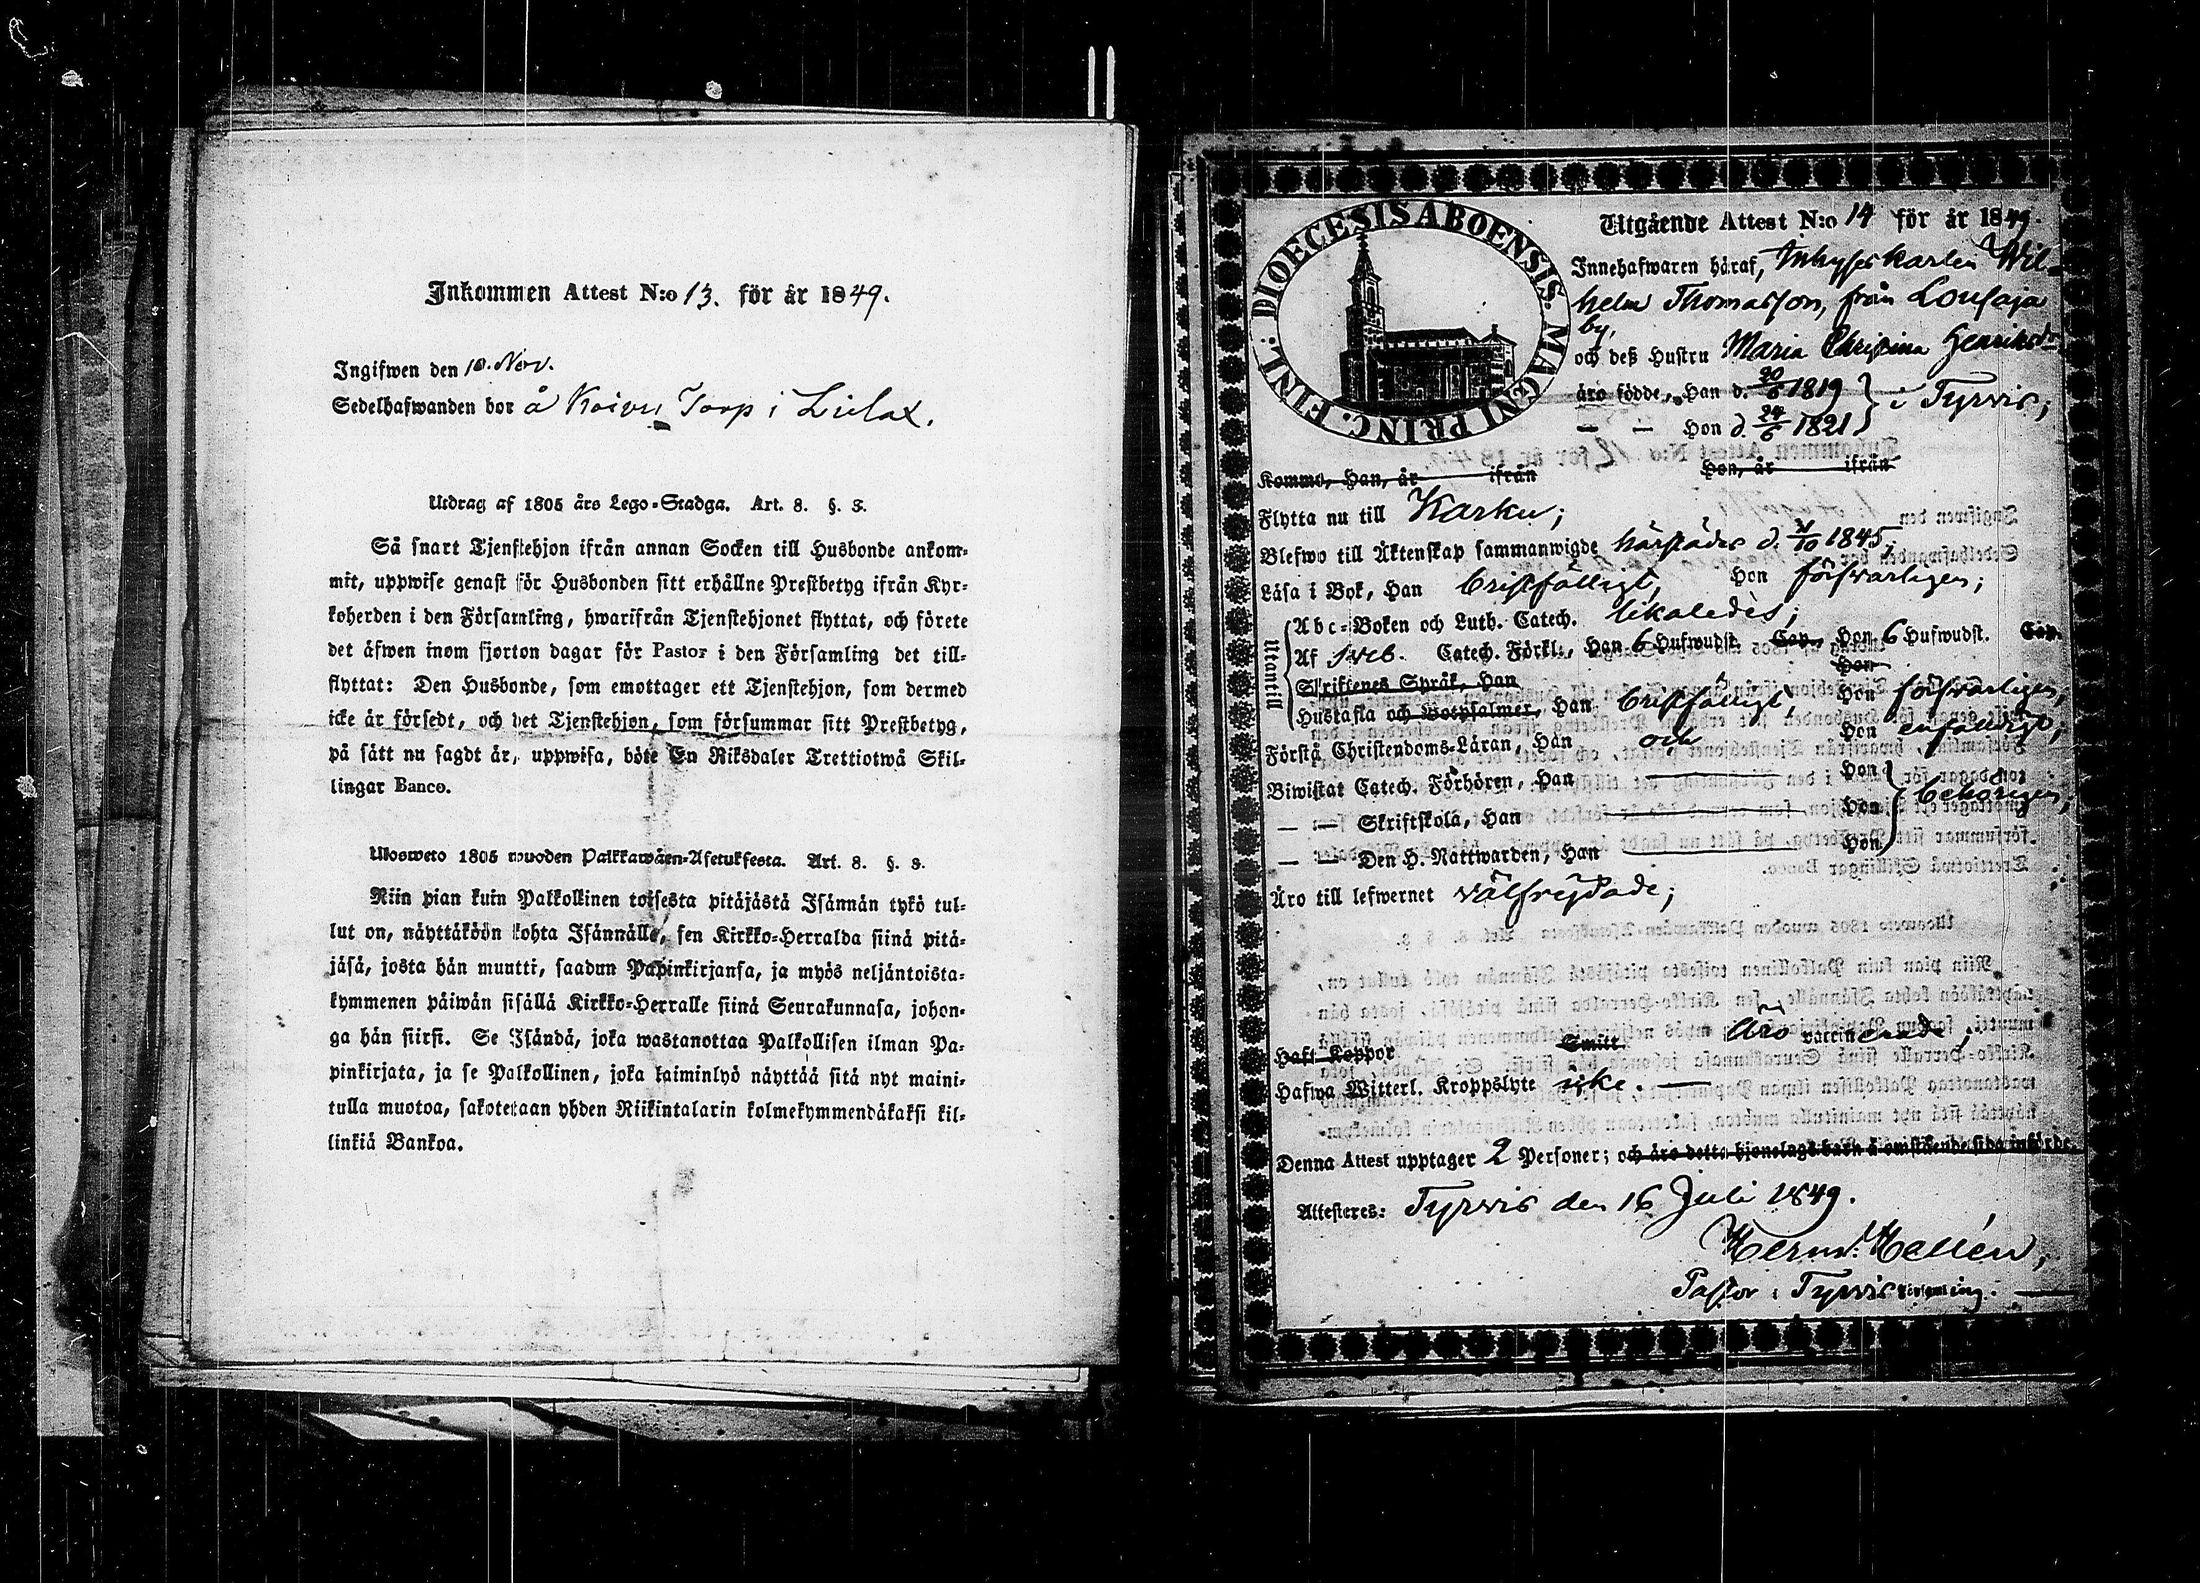 Inkommen Attest N:o 13. för år 1849.
Ingifwen den 10. Nov.
Sedelhafwanden bor å Koivu Torp i Lielax.
Utdrag af 1805 års Lego-Stadga. Art. 8. §. 3.
Så snart Tjenstehjon ifrån annan Socken till Husbonde ankom-
mit, uppwise genast för Husbonden sitt erhållne Prestbetyg ifrån Kyr-
koherden i den Församling, hwarifrån Tjenstehjonet flyttat, och förete
det äfwen inom fjorton dagar för Pastor i den Församling det till-
flyttat: Den Husbonde, som emottager ett Tjenstehjon, som dermed
icke är försedt, och det Tjenstehjon, som försummar sitt Prestbetyg,
på sätt nu sagdt är, uppwisa, böte En Riksdaler Trettiotwå Skil-
lingar Banco.
Ulosweto 1805 wuoden Palkkawäen-Asetuksesta. Art. 8. §. 3.
Niin pian kuin Palkollinen toisesta pitäjästä Isännän tykö tul-
lut on, näyttäköön kohta Isännälle, sen Kirkko-Herralda siinä pitä-
jäsä, josta hän muutti, saadun Papinkirjansa, ja myös neljäntoista-
kymmenen päiwän sisällä Kirkko-Herralle siinä Seurakunnasa, johon-
ga hän siirsi. Se Isändä, joka wastanottaa Palkollisen ilman Pa-
pinkirjata, ja se Palkollinen, joka laiminlyö näyttää sitä nyt maini-
tulla muotoa, sakotetaan yhden Riikintalarin kolmekymmendäkaksi kil-
linkiä Bankoa.
DIOECESIS ABOENSIS. MAGNI PRINC. FINL:
Utgående Attest N:o 14 för år 1849.
Innehafwaren häraf, Inhyses karlen Wil-
helm Thomasson, från Lousaja
by,
och deß Hustru Maria Christina Henriksdr
äro födde, Han d. 20/6 1819 } i Tyrvis;
— — Hon d. 24/6 1821 }
Kommo, Han, år ifrån Hon, år ifrån
Flytta nu till Karku;
Blefwo till Äktenskap sammanwigde härstädes d. 4/10 1845;
Läsa i Bok, Han bristfälligt, Hon försvarligen;
Utantill
Abc-Boken och Luth. Catech. likaledes;
Af Sveb. Catech. Förkl., Han 6 Hufwudst. Cap. Hon 6 Hufwudst. Cap.
Skriftenes Språk, Han Hon
Hustafla och Botpsalmer, Han bristfälligt, Hon försvarligen,
Förstå Christendoms-Läran, Han och Hon enfaldigt;
Biwistat Catech. Förhören, Han Hon
— — Skriftskola, Han Hon } behörigen;
— — Den H. Nattwarden, Han Hon
Äro till lefwernet välfrejdade;
Haft Koppor Smitt. Äro vaccinerade;
Hafwa Witterl. Kroppslyte icke. —
Denna Attest upptager 2 Personer; och äro detta hjonelags barn å omstående sida införde.
Attesteres: Tyrvis den 16 Juli 1849.
Herm: Hellén,
Pastor i Tyrvis Församling.